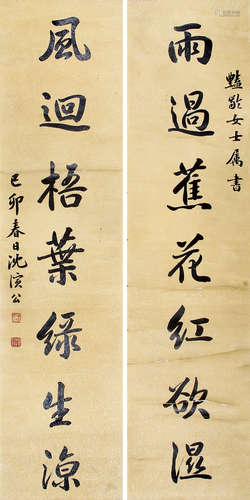 艷齡女士屬書
雨過蕉花紅欲濕
風迴梧葉綠生涼
己卯春日沈演公